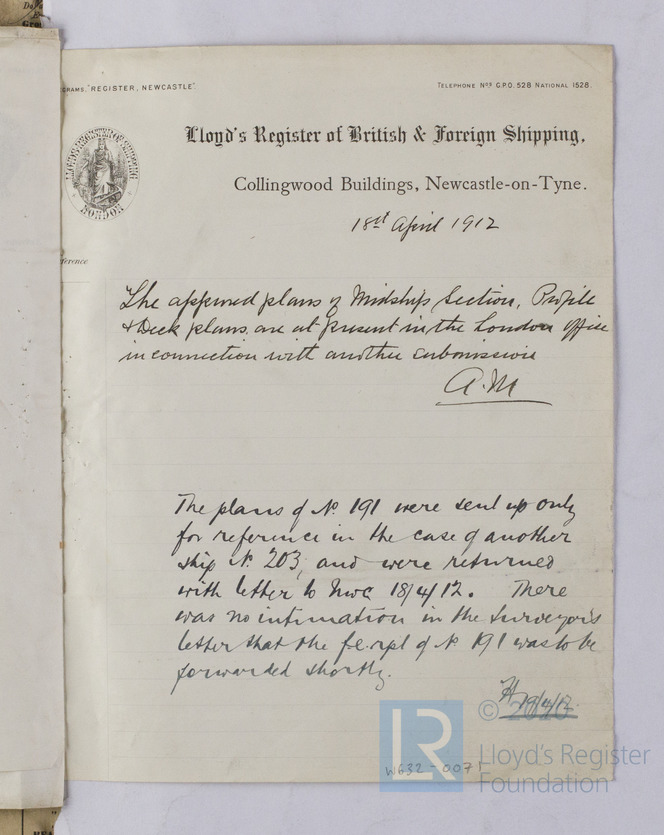 GRAMS, "REGISTER, NEWCASTLE".
TELEPHONE Nos. G.P.O. 528 NATIONAL 1528.
Lloyd's Register of British & Foreign Shipping.
Collingwood Buildings, Newcastle-on-Tyne.
LLOYD'S REGISTER OF SHIPPING
LONDON
18th April 1912
ference
The approved plans of Midship Section, Profile
& Deck plans are at present in the London office
in connection with another submission
A.M
The plans of No. 191 were sent up only
for reference in the case of another
ship No. 203, and were returned
with letter to Nwc 18/4/12. There
was no intimation in the Surveyor's
letter that the f.e. rpt of No 191 was to be
forwarded shortly.
19/4/12.
©
LR
Lloyd's Register
Foundation
W632-0071